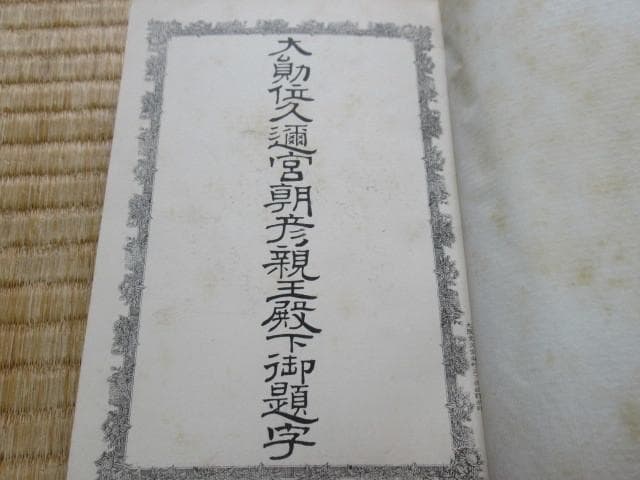 大勲位久邇宮朝彦親王殿下御題字